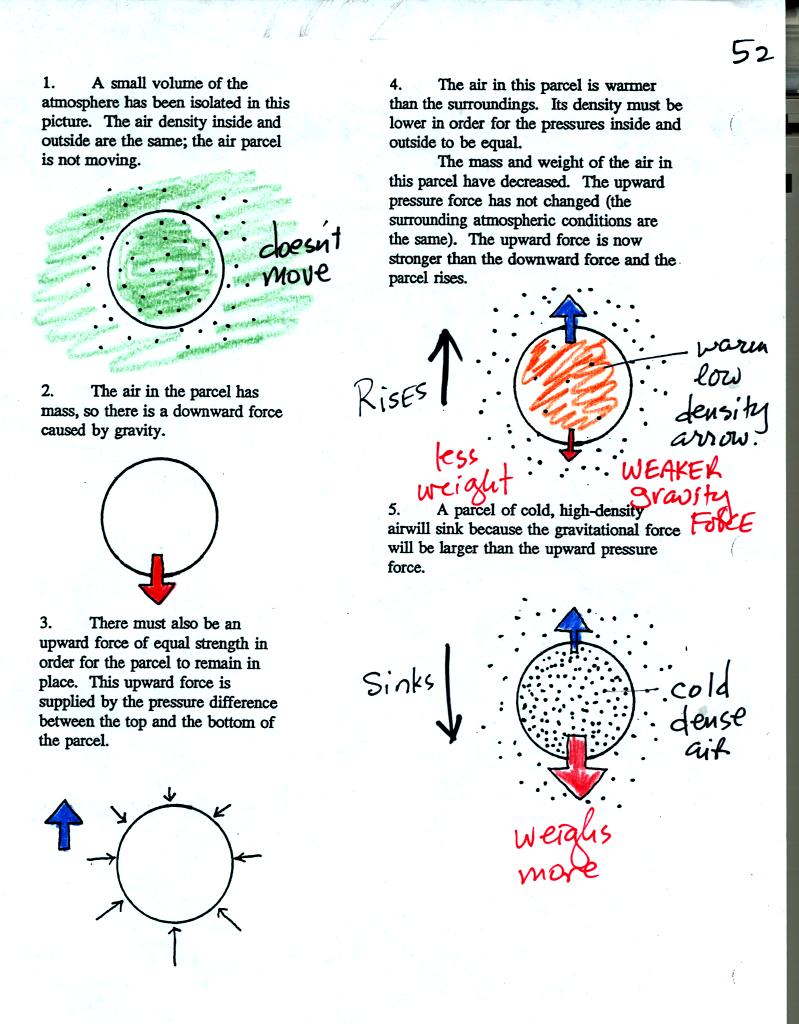 52
1. A small volume of the
atmosphere has been isolated in this
picture. The air density inside and
outside are the same; the air parcel
is not moving.
doesn't
move
2. The air in the parcel has
mass, so there is a downward force
caused by gravity.
3. There must also be an
upward force of equal strength in
order for the parcel to remain in
place. This upward force is
supplied by the pressure difference
between the top and the bottom of
the parcel.
4. The air in this parcel is warmer
than the surroundings. Its density must be
lower in order for the pressures inside and
outside to be equal.
The mass and weight of the air in
this parcel have decreased. The upward
pressure force has not changed (the
surrounding atmospheric conditions are
the same). The upward force is now
stronger than the downward force and the
parcel rises.
RISES
warm
low
density
arrow.
less
weight
WEAKER
gravity
FORCE
5. A parcel of cold, high-density
airwill sink because the gravitational force
will be larger than the upward pressure
force.
Sinks
cold
dense
air
weighs
more